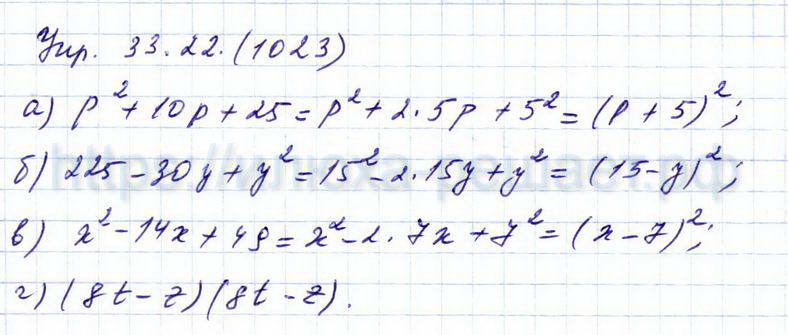 Упр. 33.22.(1023)
а) p² + 10p + 25 = p² + 2·5p + 5² = (p + 5)²;
б) 225 – 30y + y² = 15² – 2·15y + y² = (15 – y)²;
в) x² – 14x + 49 = x² – 2·7x + 7² = (x – 7)²;
г) (8t – z)(8t – z).